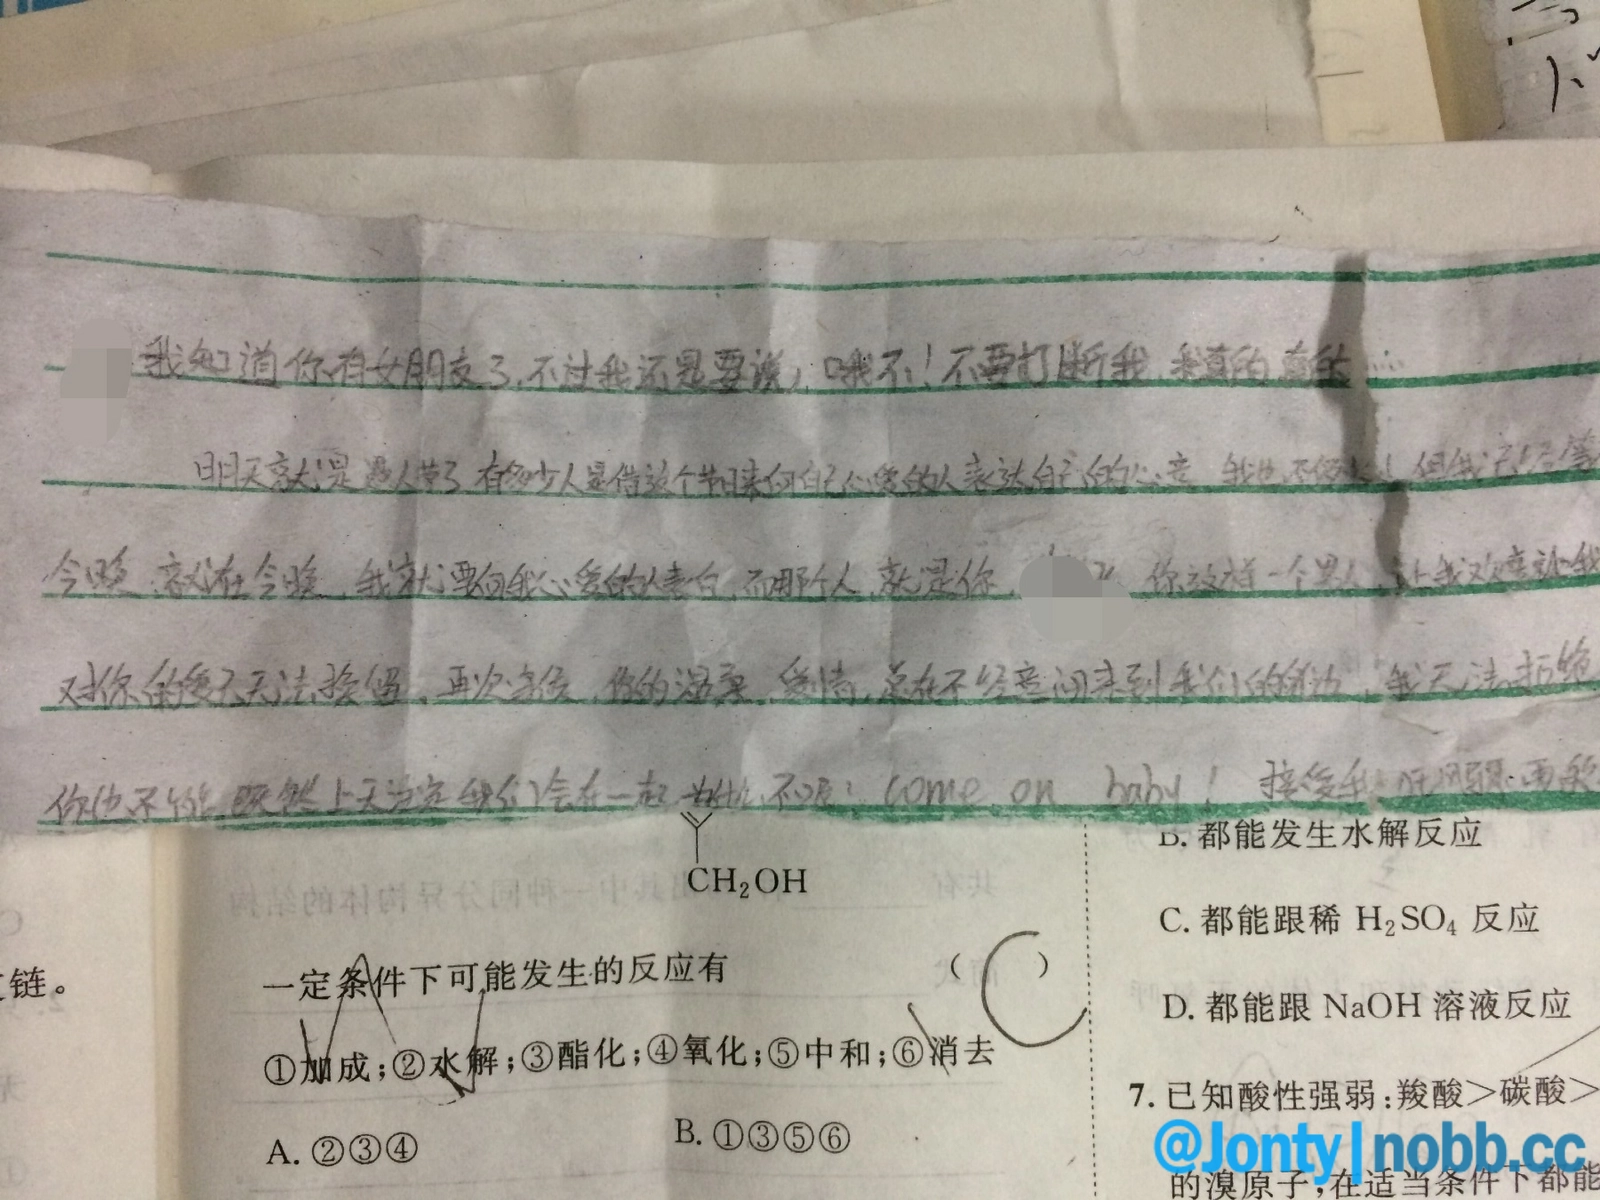 我知道你有女朋友了，不过我还是要说，哦不！不要打断我，我真的真的……
明天就是愚人节了 有多少人是借这个节日来向自己心爱的人表达自己的心意 我也不例外！但我
今晚，就在今晚，我就要向我心爱的人表白，而那个人，就是你， 你这样一个男人，让我
对你的爱 无法 再次 你的温柔，爱情，总在不经意间来到我们的身边，我无法拒绝
你也不能，既然上天注定我们会在一起 为什么不呢？come on baby！ 接受我
CH₂OH
一定条件下可能发生的反应有 （ ）
①加成；②水解；③酯化；④氧化；⑤中和；⑥消去
A. ②③④ B. ①③⑤⑥
链。
B. 都能发生水解反应
C. 都能跟稀 H₂SO₄ 反应
D. 都能跟 NaOH 溶液反应
7. 已知酸性强弱：羧酸>碳酸>
的溴原子，在适当条件下都能
@Jonty|nobb.cc